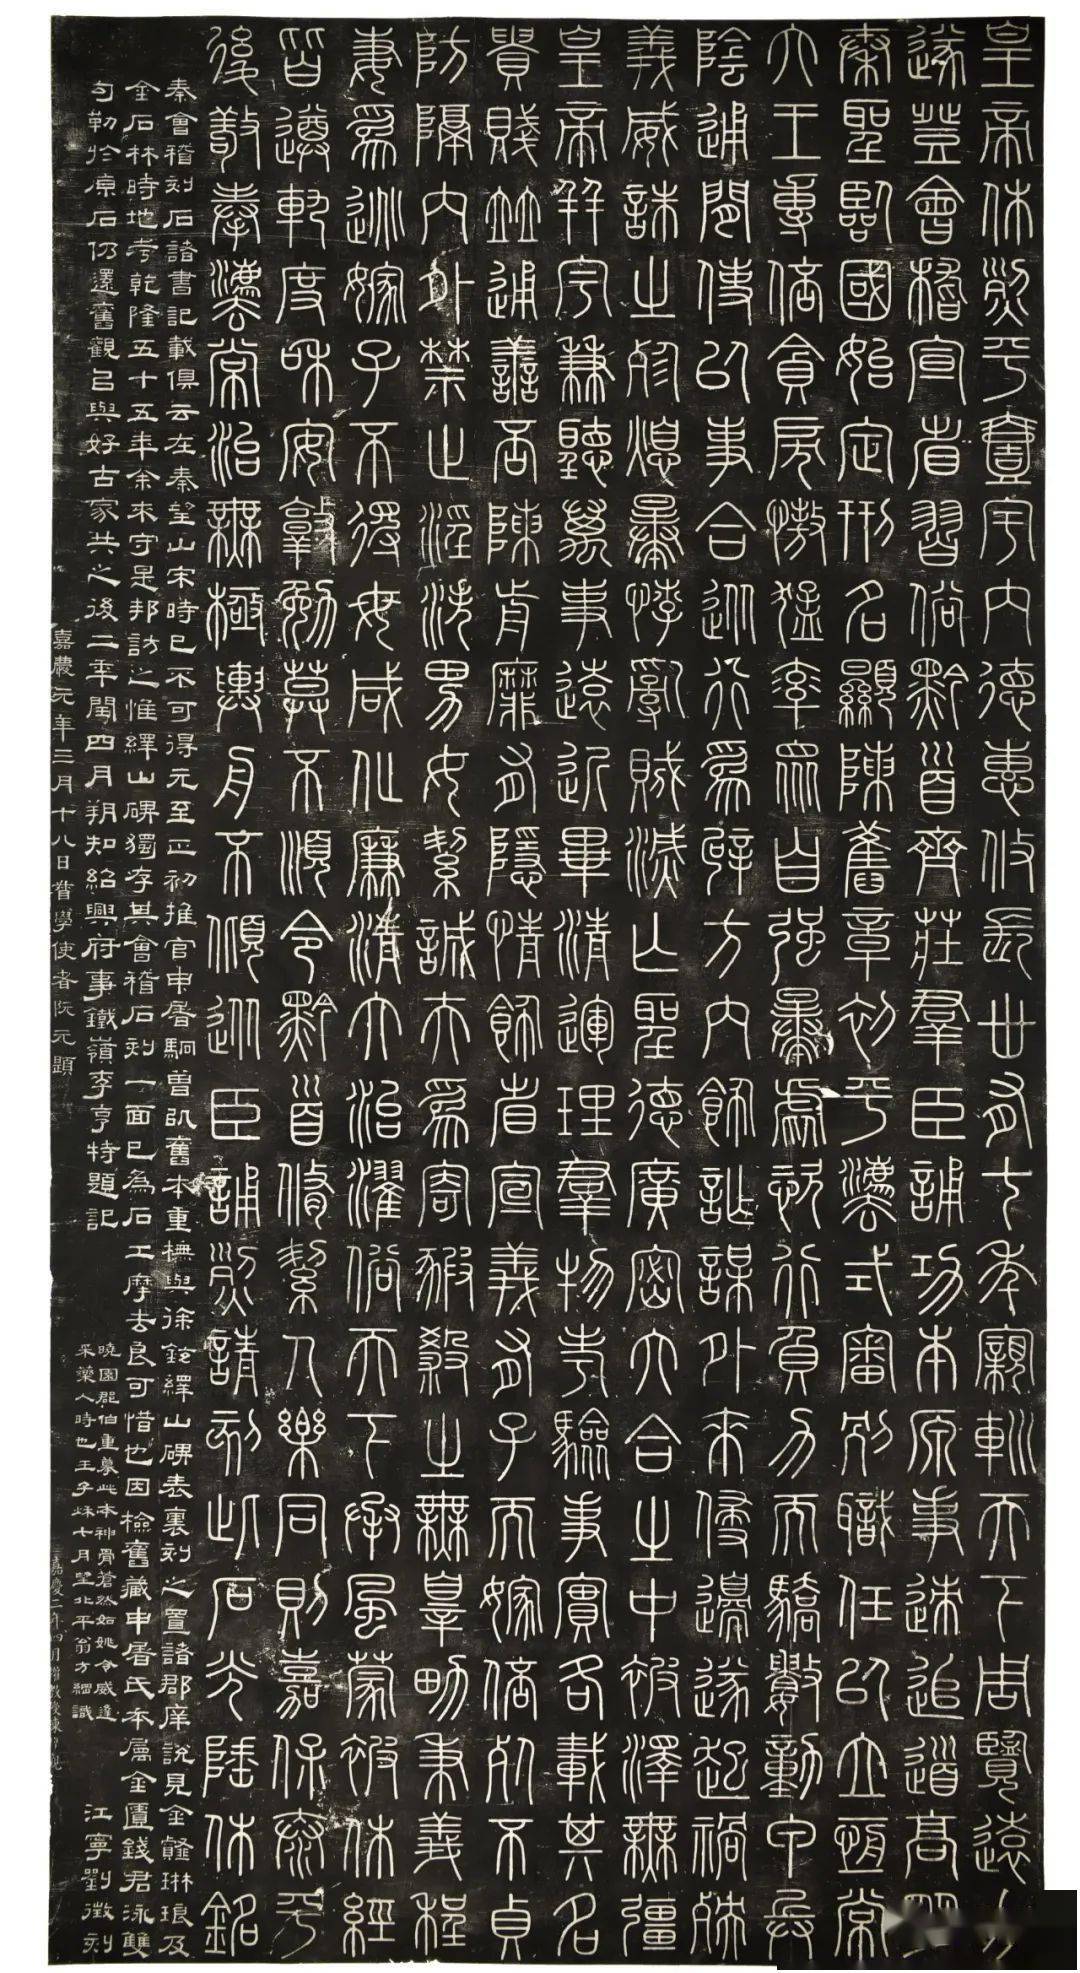 皇帝休烈平壹宇內德惠攸長丗有七年親軨天下周覽遠方
遂登會稽宣省習俗黔首齊莊羣臣誦功本原事迹追道高明
秦聖臨國始定刑名顯陳舊章初平灋式審別職任以立恆常
六王專倍貪戾慠猛率眾自強暴虐恣行負力而驕數動甲兵
陰通閒使以事合從行為辟方內飾詐謀外來侵邊遂起禍殃
義威誅之殄熄暴悖亂賊滅亡聖德廣密六合之中被澤無疆
皇帝并宇兼聽萬事遠近畢清運理羣物考驗事實各載其名
貴賤並通善否陳前靡有隱情飾省宣義有子而嫁倍死不貞
防隔內外禁止淫泆男女絜誠夫為寄豭殺之無辠男秉義程
妻為逃嫁子不得母咸化廉清大治濯俗天下承風蒙被休經
皆遵軌度和安敦勉莫不順令黔首脩絜人樂同則嘉保泰平
後敬奉灋常治無極輿舟不傾從臣誦烈請刻此石光陲休銘
秦會稽刻石諸書記載俱云在秦望山宋時已不可得元至正初推官申屠駉曾以舊本重橅與徐鉉繹山碑表裏刻之置諸郡庠說見金薤琳琅及
金石林時地考乾隆五十五年余來守是邦訪之惟繹山碑獨存其會稽石刻一面已為石工摩去良可惜也因檢舊藏申屠氏本屬金匱錢君泳雙
勾勒於原石仍還舊觀㠯與好古家共之後二年閏四月朔知紹興府事鐵嶺李亨特題記
江寧劉徵刻
曉園郡伯重摹此本神骨蒼然如姚令威逢
采藥人時也壬子秋七月望北平翁方綱識
嘉慶元年三月十八日督學使者阮元題
嘉慶二年四月